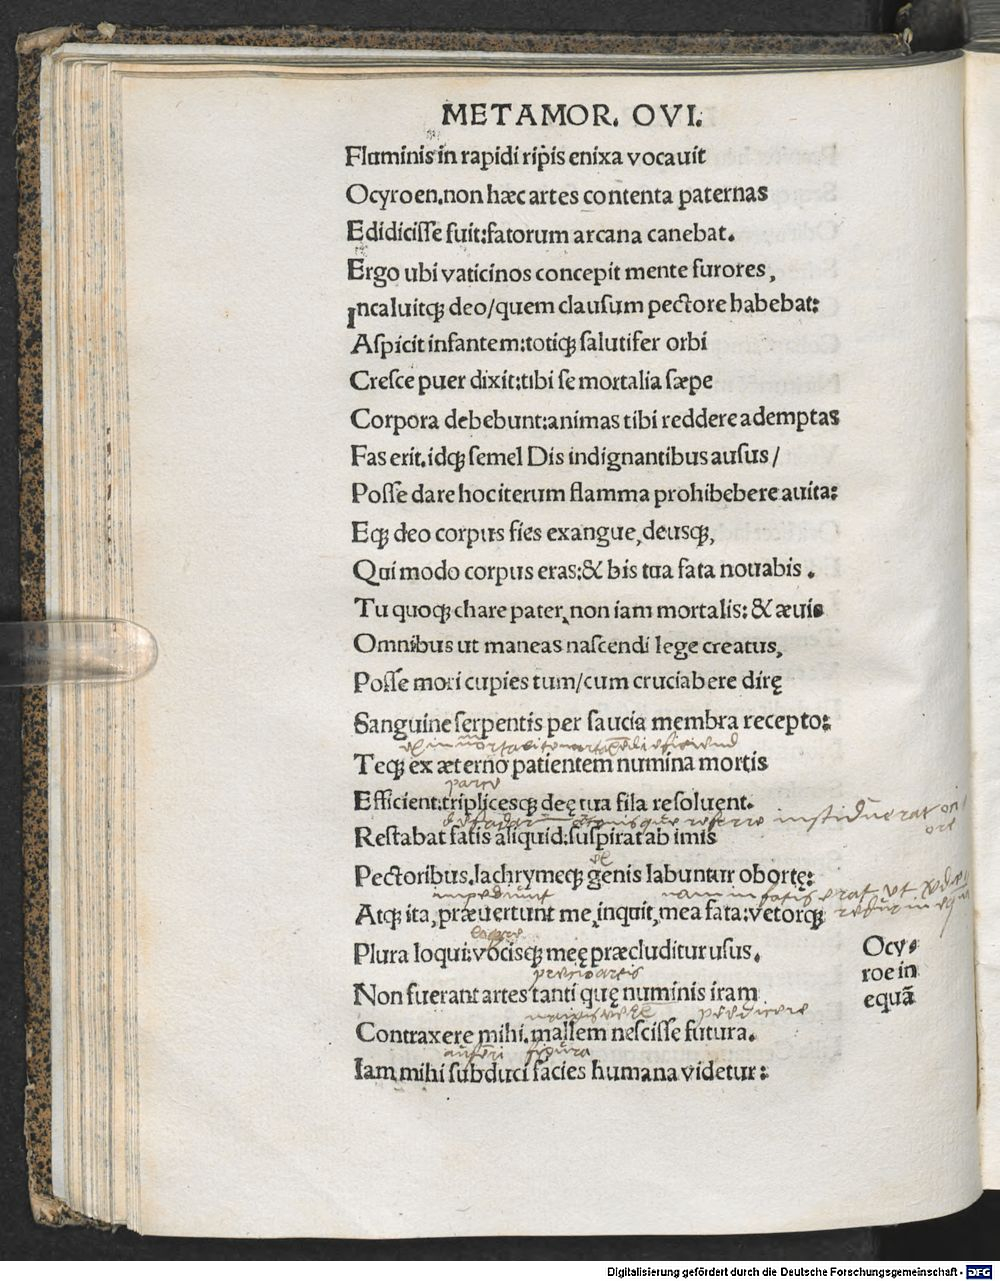 METAMOR. OVI.
Fluminis in rapidi ripis enixa vocauit
Ocyroen.non hæc artes contenta paternas
Edidicisse fuit:fatorum arcana canebat.
Ergo ubi vaticinos concepit mente furores,
Incaluitqꝫ deo/quem clausum pectore habebat:
Aspicit infantem:totiqꝫ salutifer orbi
Cresce puer dixit:tibi se mortalia sæpe
Corpora debebunt:animas tibi reddere ademptas
Fas erit.idqꝫ semel Dis indignantibus ausus/
Posse dare hoc iterum flamma prohibebere auita:
Eqꝫ deo corpus fies exangue,deusqꝫ,
Qui modo corpus eras:& bis tua fata nouabis.
Tu quoqꝫ chare pater,non iam mortalis:& æuis
Omnibus ut maneas nascendi lege creatus,
Posse mori cupies tum/cum cruciabere dirę
Sanguine serpentis per saucia membra recepto:
Teqꝫ ex æterno patientem numina mortis
Efficient:triplicesqꝫ deę tua fila resoluent.
Restabat fatis aliquid:suspirat ab imis
Pectoribus.lachrymeqꝫ genis labuntur obortę:
impediunt
Atqꝫ ita,præuertunt me,inquit,mea fata:vetorqꝫ
Plura loqui:vocisqꝫ meę præcluditur usus.
Ocy-
roe in
equā
Non fuerant artes tanti quę numinis iram
Contraxere mihi.mallem nescisse futura.
figura
Iam mihi subduci facies humana videtur:
Digitalisierung gefördert durch die Deutsche Forschungsgemeinschaft - DFG